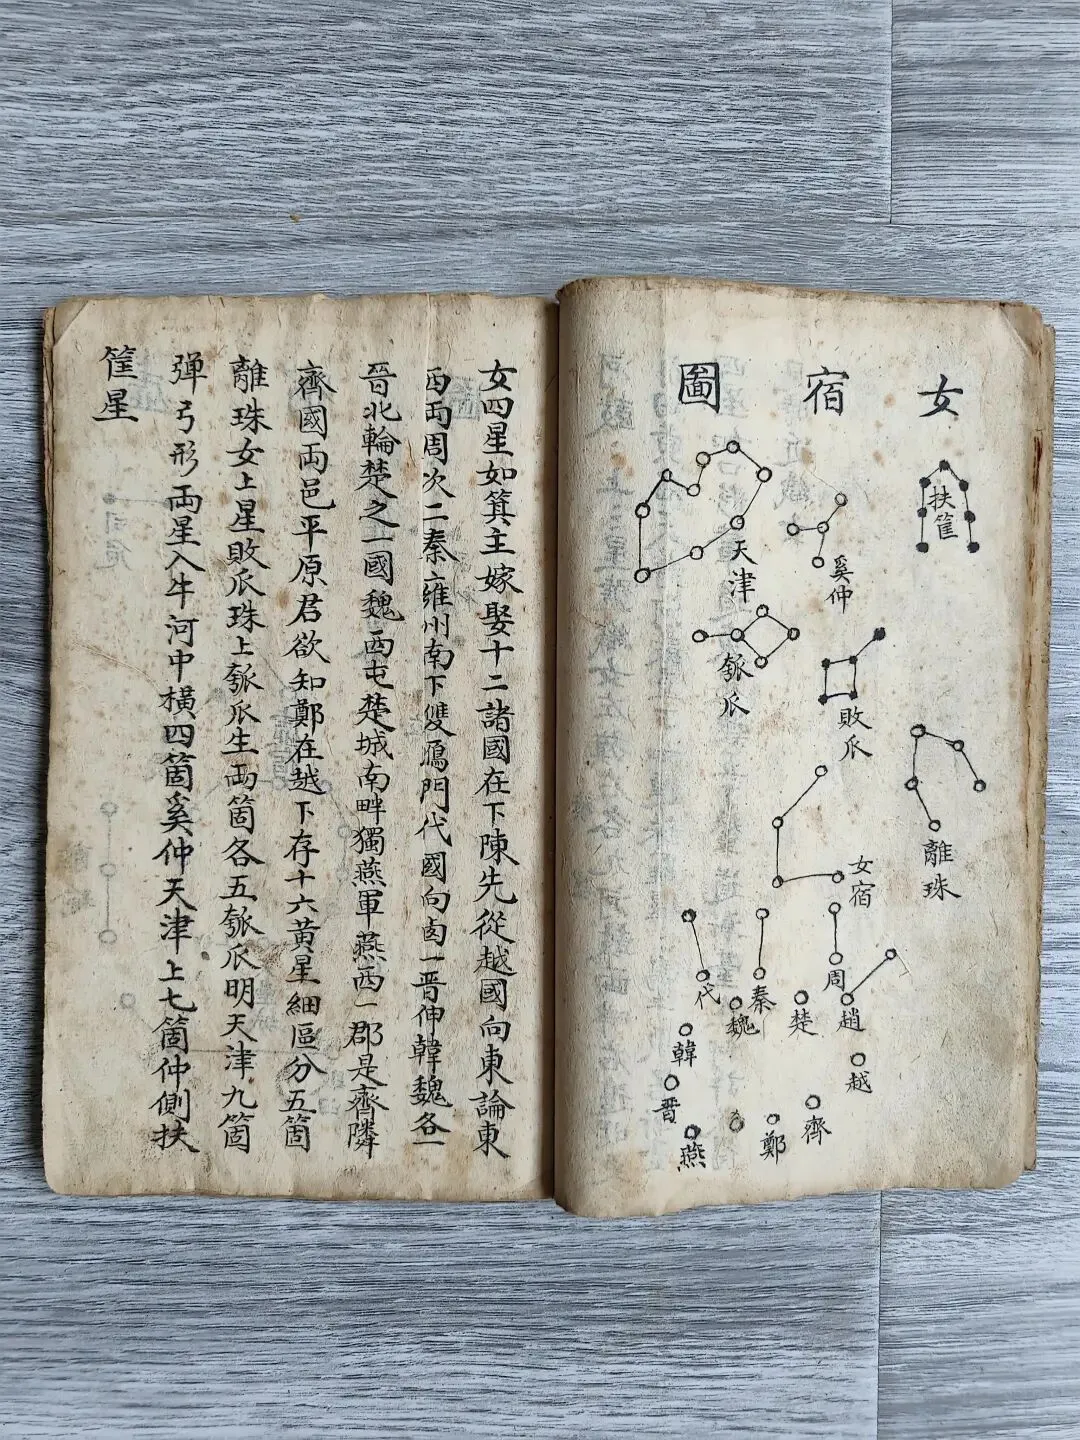 女宿圖
扶筐
奚仲
天津
瓠瓜
敗瓜
離珠
女宿
周
秦
代
趙
楚
魏
韓
越
晉
齊
鄭
燕
女四星如箕主嫁娶十二諸國在下陳先從越國向東論東
西両周次二秦雍州南下雙鴈門代國向卤一晉伸韓魏各一
晉北輪楚之一國魏西屯楚城南畔獨燕軍燕西一郡是齊隣
齊國両邑平原君欲知鄭在越下存十六黃星細區分五箇
離珠女上星敗瓜珠上瓠瓜生両箇各五瓠瓜明天津九箇
弹弓形両星入牛河中橫四箇奚仲天津上七箇仲側扶
筐星